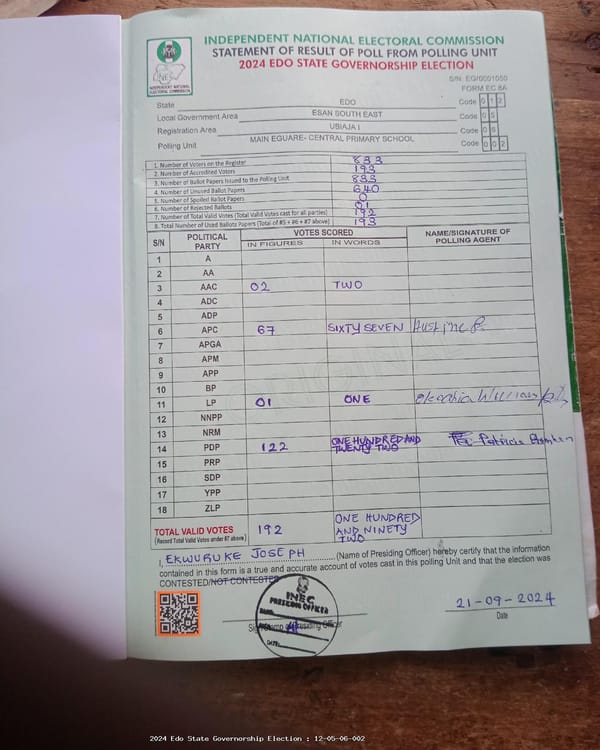 INDEPENDENT NATIONAL ELECTORAL COMMISSION
STATEMENT OF RESULT OF POLL FROM POLLING UNIT
2024 EDO STATE GOVERNORSHIP ELECTION
INEC
INDEPENDENT NATIONAL
ELECTORAL COMMISSION
S/N EG/0001050
FORM EC 8A
State EDO Code 0 1 2
Local Government Area ESAN SOUTH EAST Code 0 5
Registration Area UBIAJA I Code 0 6
Polling Unit MAIN EGUARE- CENTRAL PRIMARY SCHOOL Code 0 0 2
1. Number of Voters on the Register 833
2. Number of Accredited Voters 193
3. Number of Ballot Papers Issued to the Polling Unit 833
4. Number of Unused Ballot Papers 640
5. Number of Spoiled Ballot Papers 0
6. Number of Rejected Ballots 01
7. Number of Total Valid Votes (Total Valid Votes cast for all parties) 192
8. Total Number of Used Ballots Papers (Total of #5 + #6 + #7 above) 193
S/N POLITICAL PARTY VOTES SCORED NAME/SIGNATURE OF POLLING AGENT
IN FIGURES IN WORDS
1 A
2 AA
3 AAC 02 TWO
4 ADC
5 ADP
6 APC 67 SIXTY SEVEN
7 APGA
8 APM
9 APP
10 BP
11 LP 01 ONE
12 NNPP
13 NRM
14 PDP 122 ONE HUNDRED AND TWENTY TWO Patricia
15 PRP
16 SDP
17 YPP
18 ZLP
TOTAL VALID VOTES 192 ONE HUNDRED AND NINETY TWO
(Record Total Valid Votes under #7 above)
I, EKWURUKE JOSEPH (Name of Presiding Officer) hereby certify that the information
contained in this form is a true and accurate account of votes cast in this polling Unit and that the election was
CONTESTED/NOT CONTESTED
INEC
PRESIDING OFFICER
DATE:
21-09-2024
Date
2024 Edo State Governorship Election : 12-05-06-002